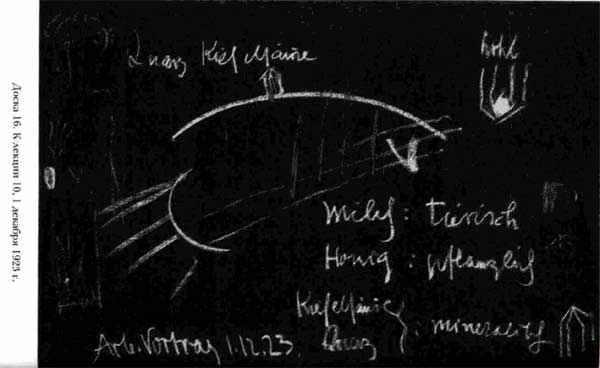 Доска 16. К лекции 10, 1 декабря 1923 г.
Quarz Kieselsäure
hohl
Milch : tierisch
Honig : pflanzlich
Kieselsäure
Quarz } : mineralisch
Arb. Vortrag 1.12.23.